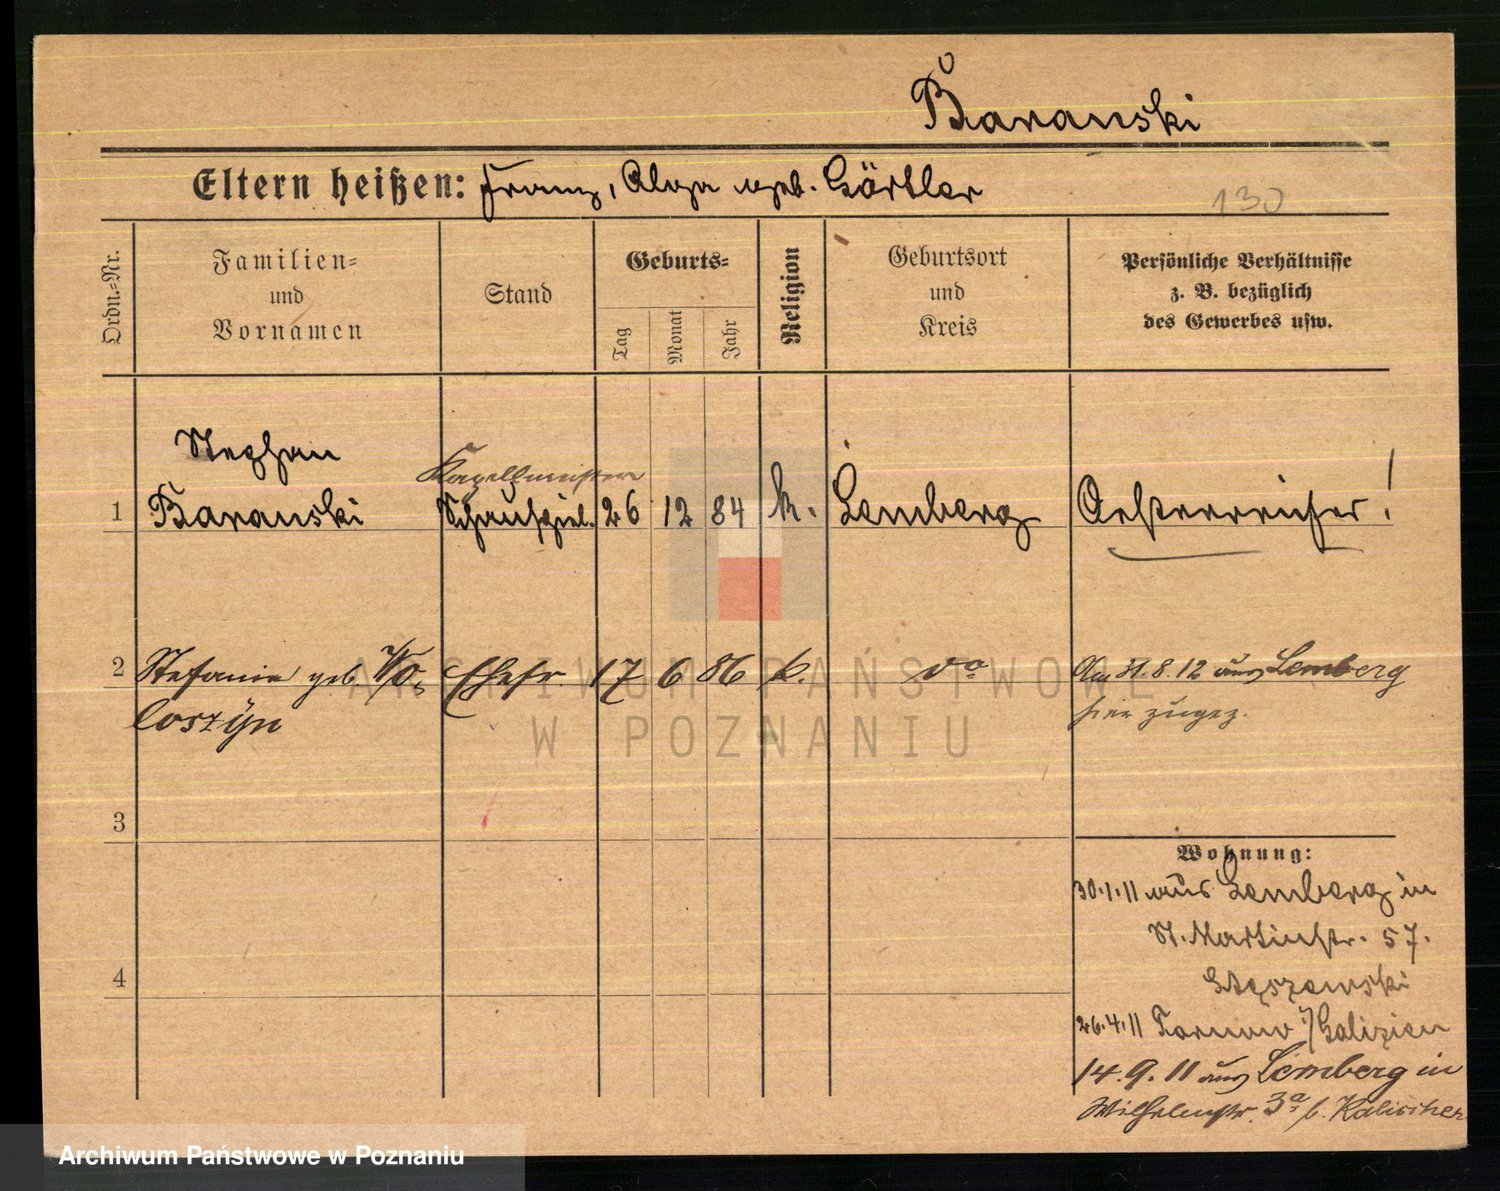 Baranski
Eltern heißen: Franz, Olga geb. Gärtler
130
Ordn.-Nr.
Familien-
und
Vornamen
Stand
Geburts-
Tag
Monat
Jahr
Religion
Geburtsort
und
Kreis
Persönliche Verhältnisse
z. B. bezüglich
des Gewerbes usw.
Stephan
Kapellmeister
1 Baranski Schauspiel. 26 12 84 k. Lemberg Oesterreicher!
2 Stefanie geb. Wo- Ehefr. 17 6 86 k. do Am 31.8.12 aus Lemberg
loszyn hier zugez.
3
Wohnung:
30.1.11 aus Lemberg in
St. Martinstr. 57.
4
26.4.11 Tarnow i/Galizien
14.9.11 aus Lemberg in
Wilhelmstr. 3a b. Kalischer
ARCHIWUM PAŃSTWOWE
W POZNANIU
Archiwum Państwowe w Poznaniu